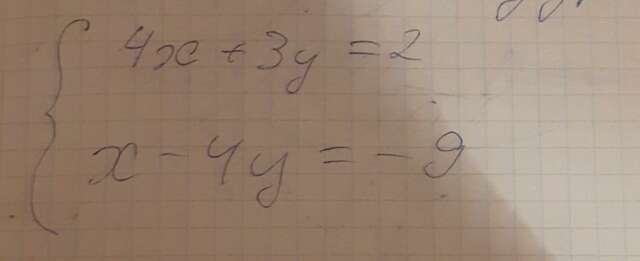 4x + 3y = 2
x - 4y = -9